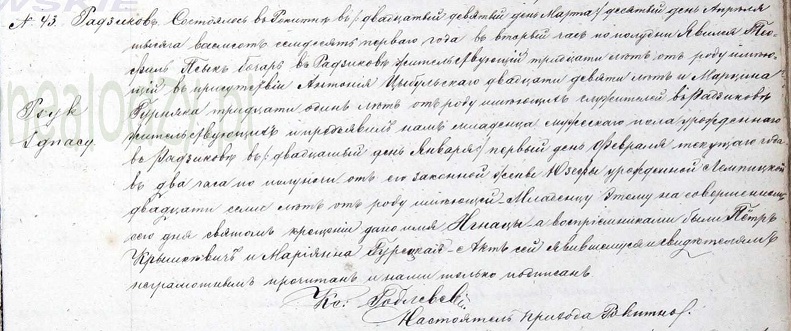 № 43. Радзиковъ. Состоялось въ Рокитнѣ въ /: двадцатый девятый день Марта :/ десятый день Апрѣля
тысяча восемсотъ семдесятъ перваго года въ вторый часъ по полудни Явился Тео-
филь Псыкъ въ Радзиковѣ жительствующій тридцати лѣтъ отъ роду имѣю-
щій въ присутствіи Антонія двадцати девяти лѣтъ и Марцина
тридцати одинъ лѣтъ отъ роду имѣющихъ служителей въ Радзиковѣ
Psyk
жительствующихъ и предъявилъ намъ младенца мужескаго пола урожденнаго
Ignacy
въ Радзиковѣ въ /: двадцатый день Января :/ первый день Февраля текущаго года
въ два часа по полуночи отъ его законной жены Юзефы урожденной Лемпицкой
двадцати семи лѣтъ отъ роду имѣющей. Младенцу этому на совершенномъ
сего дня святомъ крещеніи дано имя Игнацы а воспріемниками были Пётръ
и Маріянна Гурецкая. – Актъ сей явившемуся и свидѣтелямъ
неграмотнымъ прочитанъ и нами только подписанъ
Кс:
Настоятель прихода Рокитно.